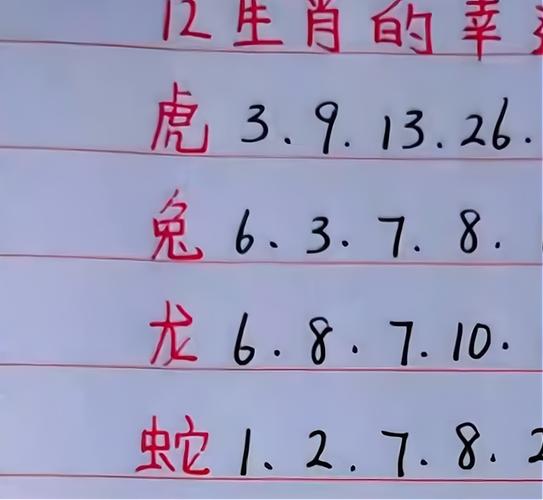 12生肖的幸
虎 3.9.13.26.
兔 6.3.7.8.
龙 6.8.7.10.
蛇 1.2.7.8.